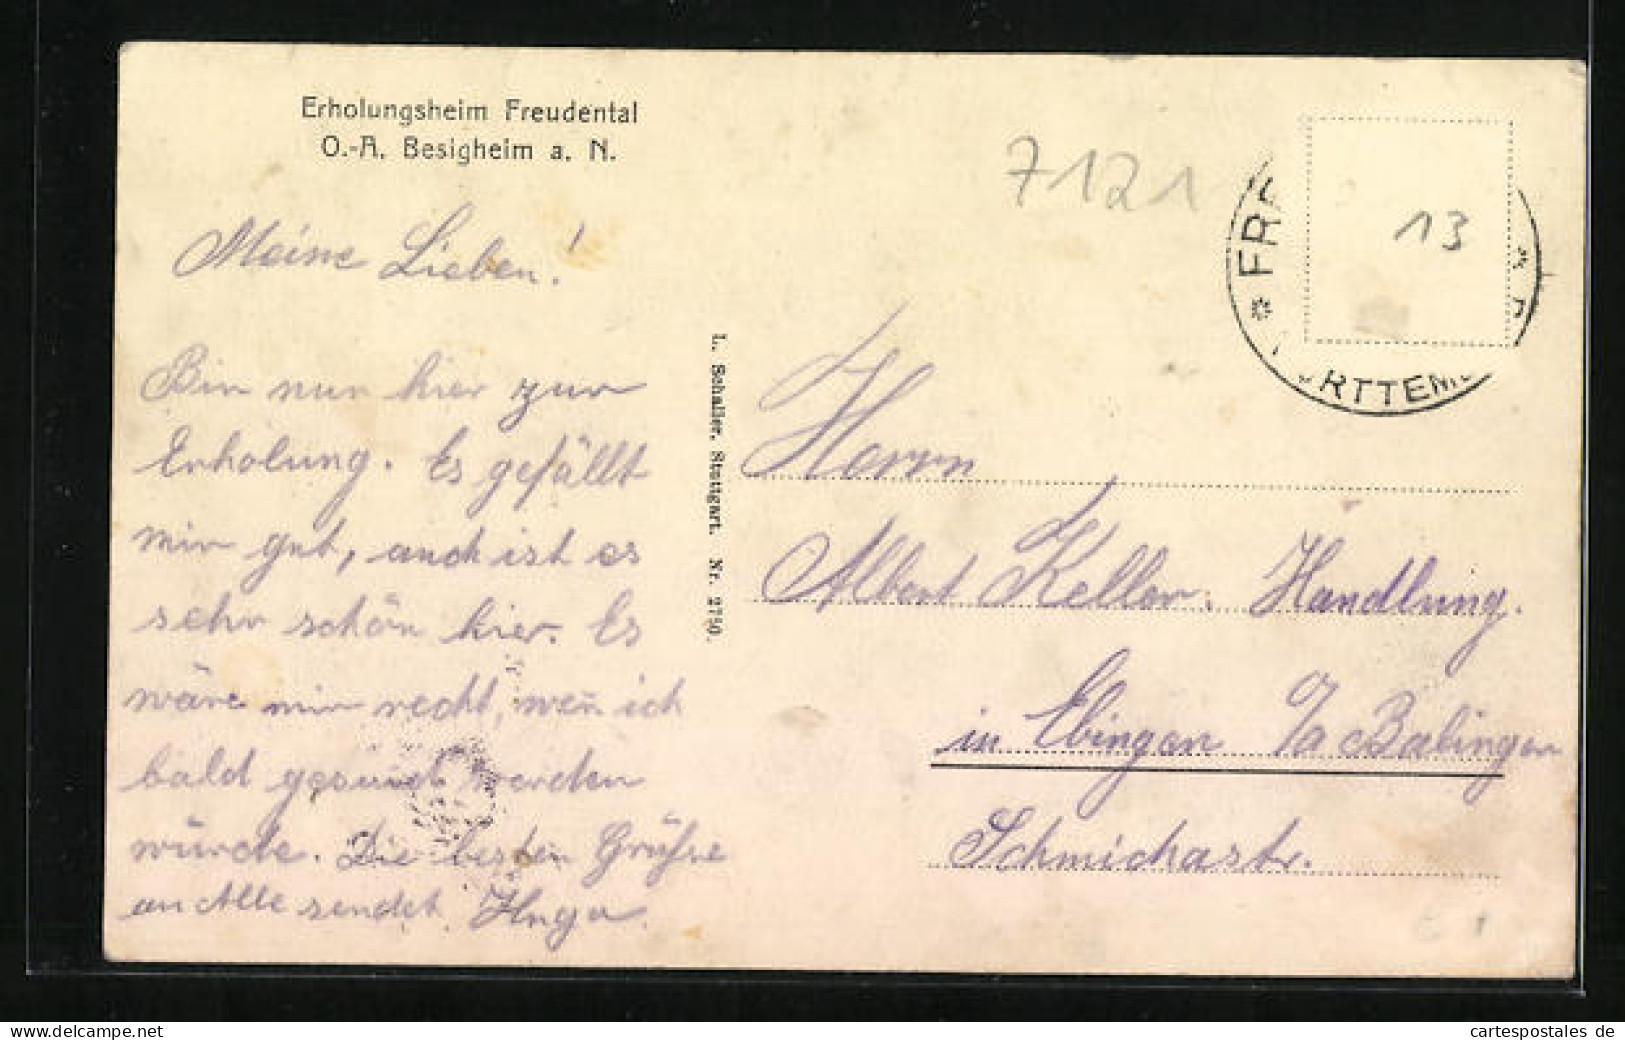 Erholungsheim Freudental
O.-A. Besigheim a. N.
Meine Lieben!
Bin nun hier zur
Erholung. Es gefällt
mir gut, auch ist es
sehr schön hier. Es
wäre mir recht, wen̄ ich
bald gesund werden
würde. Die besten Grüße
an Alle sendet
L. Schaller, Stuttgart. Nr. 2750.
7121
13
Herrn
Albert Keller. Handlung.
in Ebingen O/A Balingen
Schmichastr.
cartespostales de